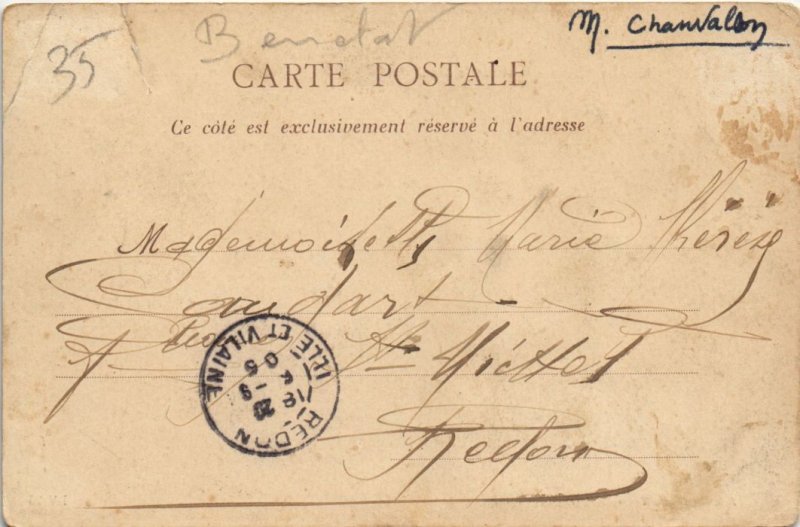 35 Benetat M. Chanvallon
CARTE POSTALE
Ce côté est exclusivement réservé à l'adresse
Mademoiselle Marie Thérèse
Caudart
Rue St Michel
Redon
REDON
ILLE ET VILAINE